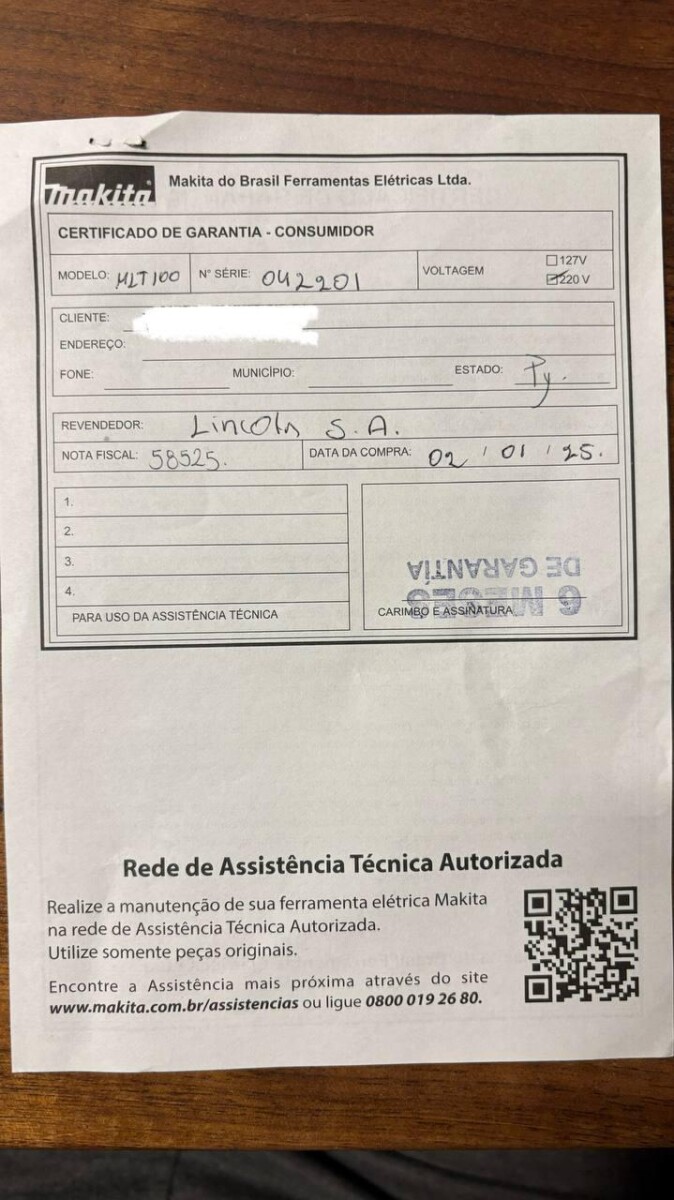 makita® Makita do Brasil Ferramentas Elétricas Ltda.
CERTIFICADO DE GARANTIA - CONSUMIDOR
MODELO: MLT100 N° SÉRIE: 042201 VOLTAGEM 127V
220 V
CLIENTE:
ENDEREÇO:
FONE: MUNICÍPIO: ESTADO: Py.
REVENDEDOR: Lincoln S.A.
NOTA FISCAL: 58525. DATA DA COMPRA: 02 / 01 / 25.
1.
2.
3.
4.
PARA USO DA ASSISTÊNCIA TÉCNICA
6 MESES
DE GARANTÍA
CARIMBO E ASSINATURA
Rede de Assistência Técnica Autorizada
Realize a manutenção de sua ferramenta elétrica Makita
na rede de Assistência Técnica Autorizada.
Utilize somente peças originais.
Encontre a Assistência mais próxima através do site
www.makita.com.br/assistencias ou ligue 0800 019 26 80.